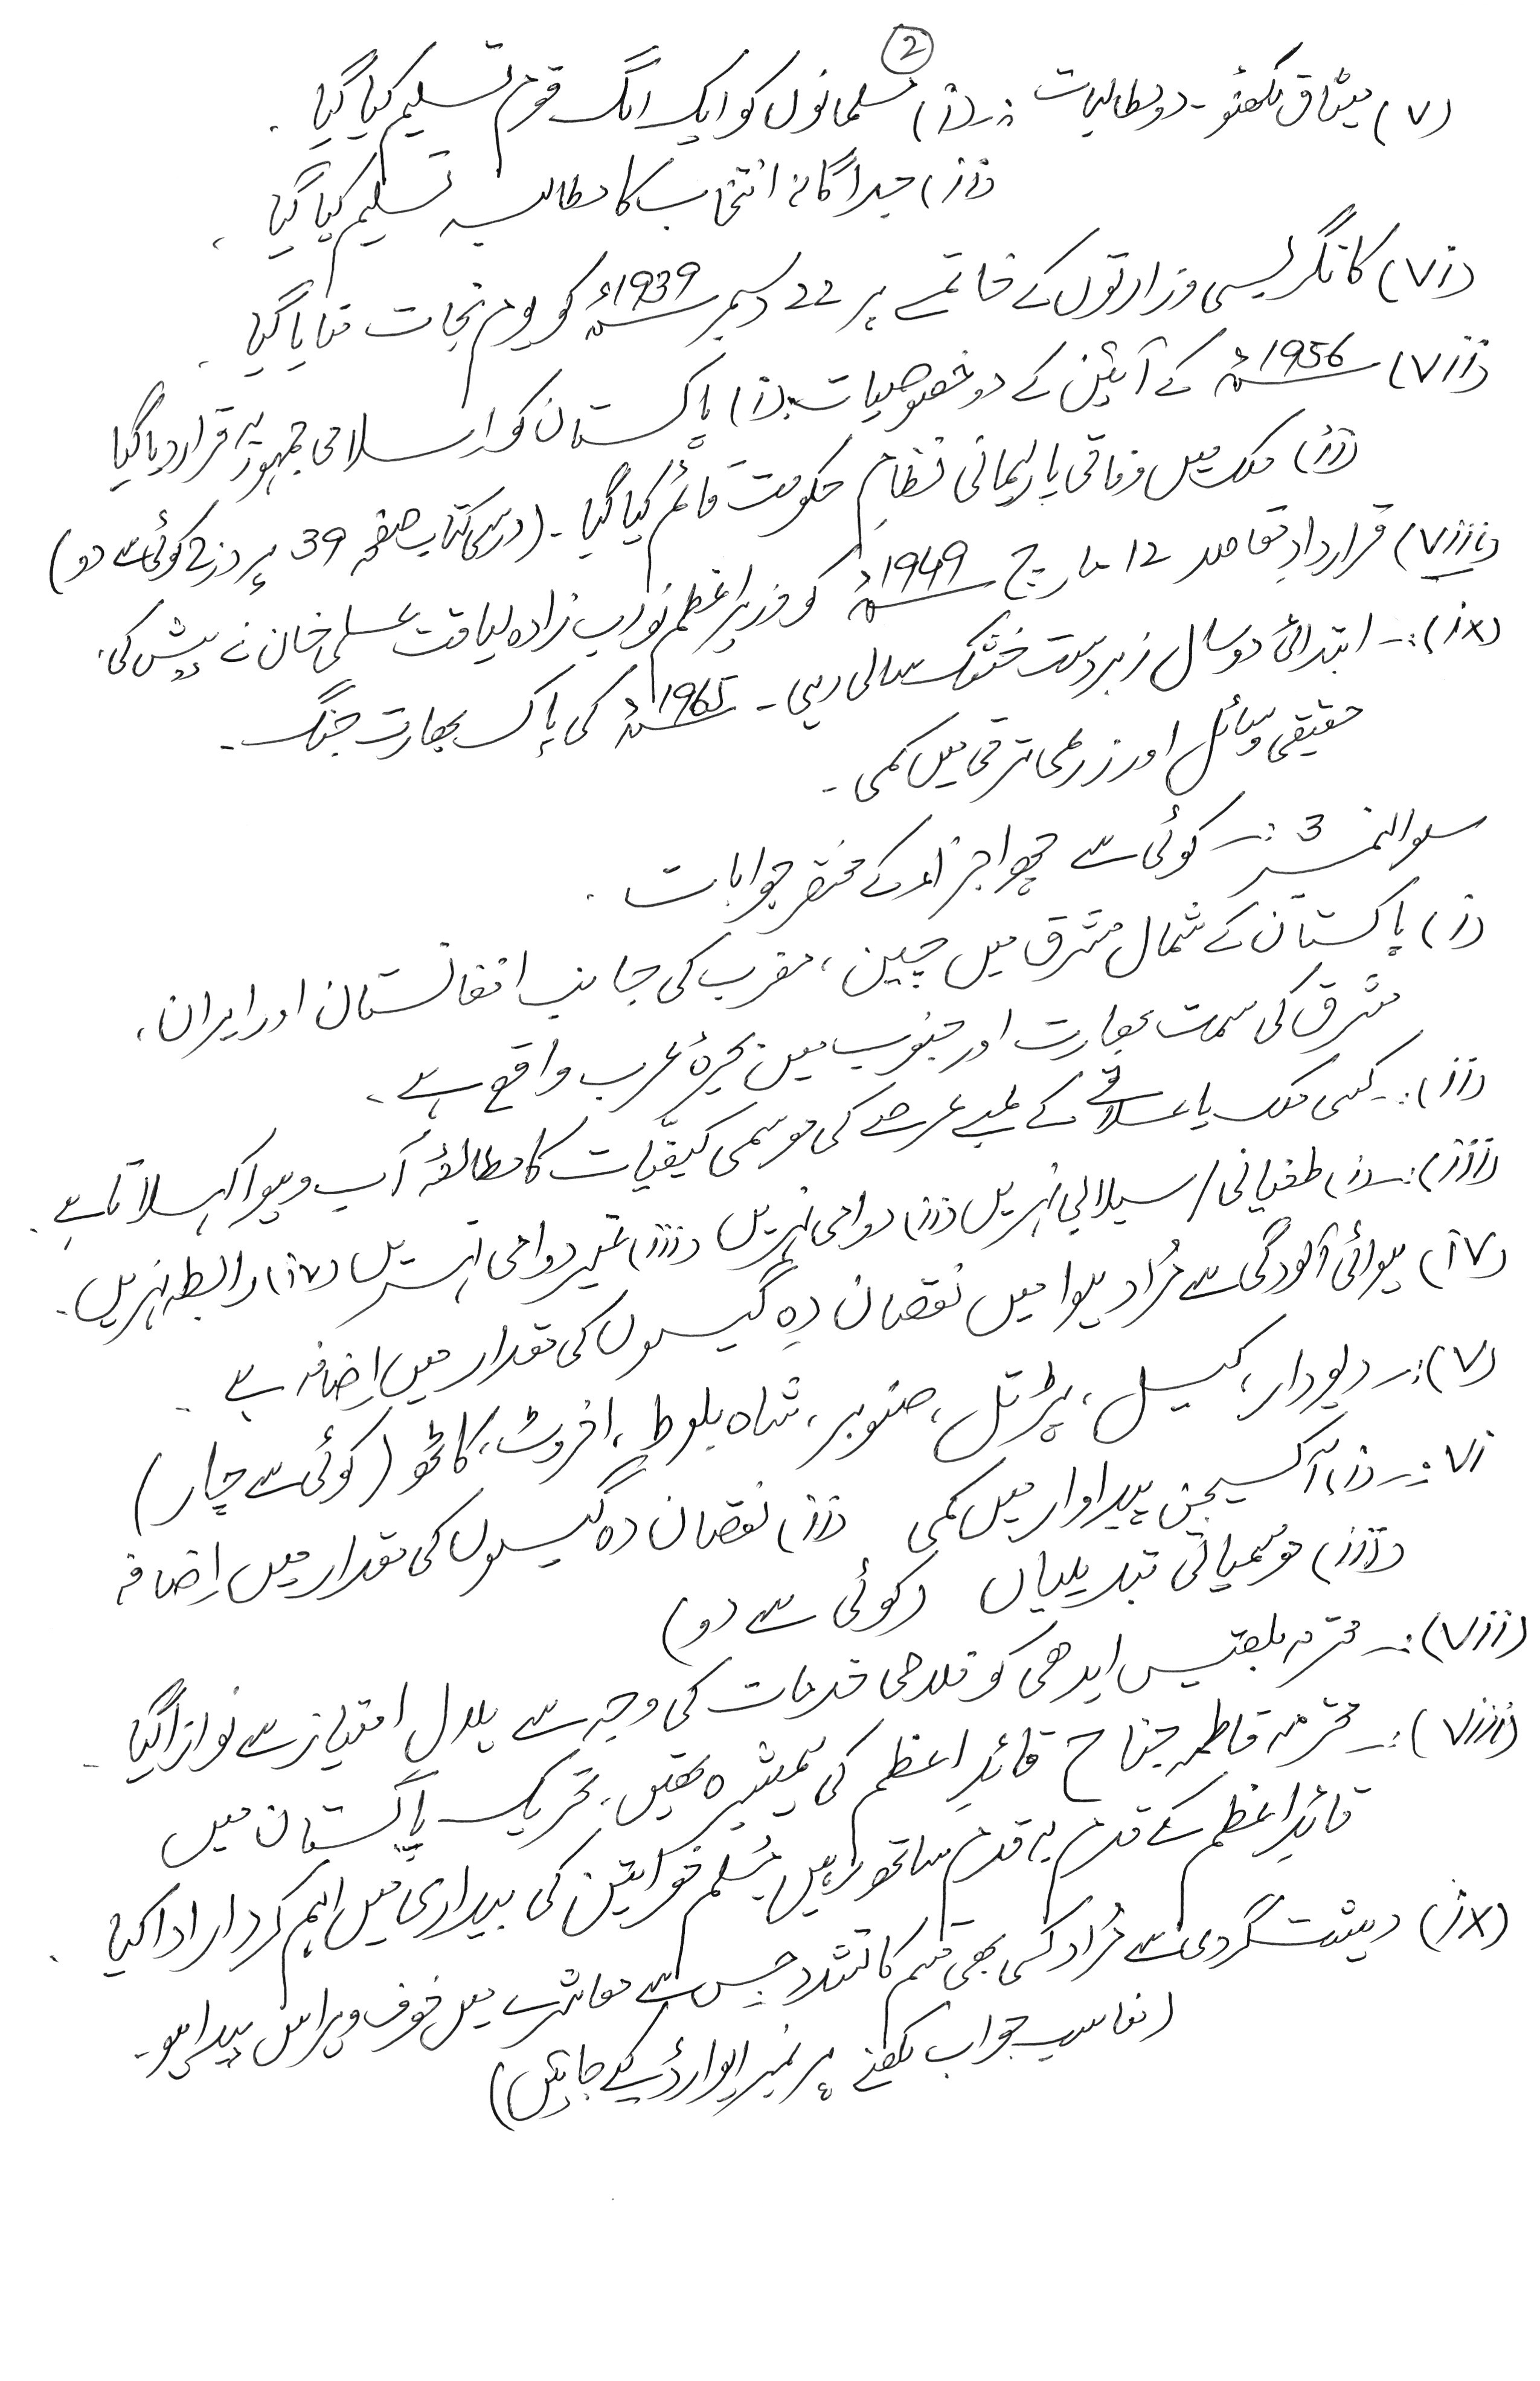 2
(v) میثاق لکھنؤ ۔ دو مطالبات :۔ (i) مسلمانوں کو ایک الگ قوم تسلیم کیا گیا ۔
(ii) جداگانہ انتخاب کا مطالبہ تسلیم کیا گیا ۔
(vi) کانگریسی وزارتوں کے خاتمے پر 22 دسمبر 1939ء کو یوم نجات منایا گیا ۔
(vii) 1956ء کے آئین کے دو خصوصیات :۔ (i) پاکستان کو اسلامی جمہوریہ قرار دیا گیا
(ii) ملک میں وفاقی پارلیمانی نظامِ حکومت قائم کیا گیا ۔ (درسی کتاب صفحہ 39 پر درج کوئی سے دو)
(viii) قراردادِ مقاصد 12 مارچ 1949ء کو وزیراعظم نواب زادہ لیاقت علی خان نے پیش کی ۔
(ix) :۔ ابتدائی دو سال زبردست خشک سالی رہی ۔ 1965ء کی پاک بھارت جنگ ۔
حقیقی وسائل اور زرعی ترقی میں کمی ۔
سوال نمبر 3 :۔ کوئی سے چھ اجزاء کے مختصر جوابات ۔
(i) پاکستان کے شمال مشرق میں چین ، مغرب کی جانب افغانستان اور ایران ،
مشرق کی سمت بھارت اور جنوب میں بحیرۂ عرب واقع ہے ۔
(ii) :۔ کسی ملک یا علاقے کے لمبے عرصے کی موسمی کیفیّات کا مطالعہ آب و ہوا کہلاتا ہے ۔
(iii) :۔ (i) طغیانی / سیلابی نہریں (ii) دوامی نہریں (iii) غیر دوامی نہریں (iv) رابطہ نہریں ۔
(iv) ہوائی آلودگی سے مُراد ہوا میں نقصان دِہ گیسوں کی مقدار میں اِضافہ ہے ۔
(v) :۔ دیودار ، کیل ، پڑتل ، صنوبر ، شاہ بلوط ، اخروٹ ، کاٹھو (کوئی سے چار)
vi :۔ (i) آکسیجن پیداوار میں کمی (ii) نقصان دہ گیسوں کی مقدار میں اِضافہ
(iii) موسمیاتی تبدیلیاں (کوئی سے دو)
(vii) :۔ محترمہ بلقیس ایدھی کو فلاحی خدمات کی وجہ سے ہلال امتیاز سے نوازا گیا ۔
(viii) :۔ محترمہ فاطمہ جناح قائدِ اعظم کی ہمشیرہ تھیں ، تحریک پاکستان میں
قائدِ اعظم کے قدم بہ قدم ساتھ رہیں مُسلم خواتین کی بیداری میں اہم کردار ادا کیا ۔
(ix) دہشت گردی سے مُراد کسی بھی قسم کا تشدد جس سے معاشرے میں خوف و ہراس پیدا ہو ۔
(مناسب جواب لکھنے پر نمبر ایوارڈ کیے جائیں)